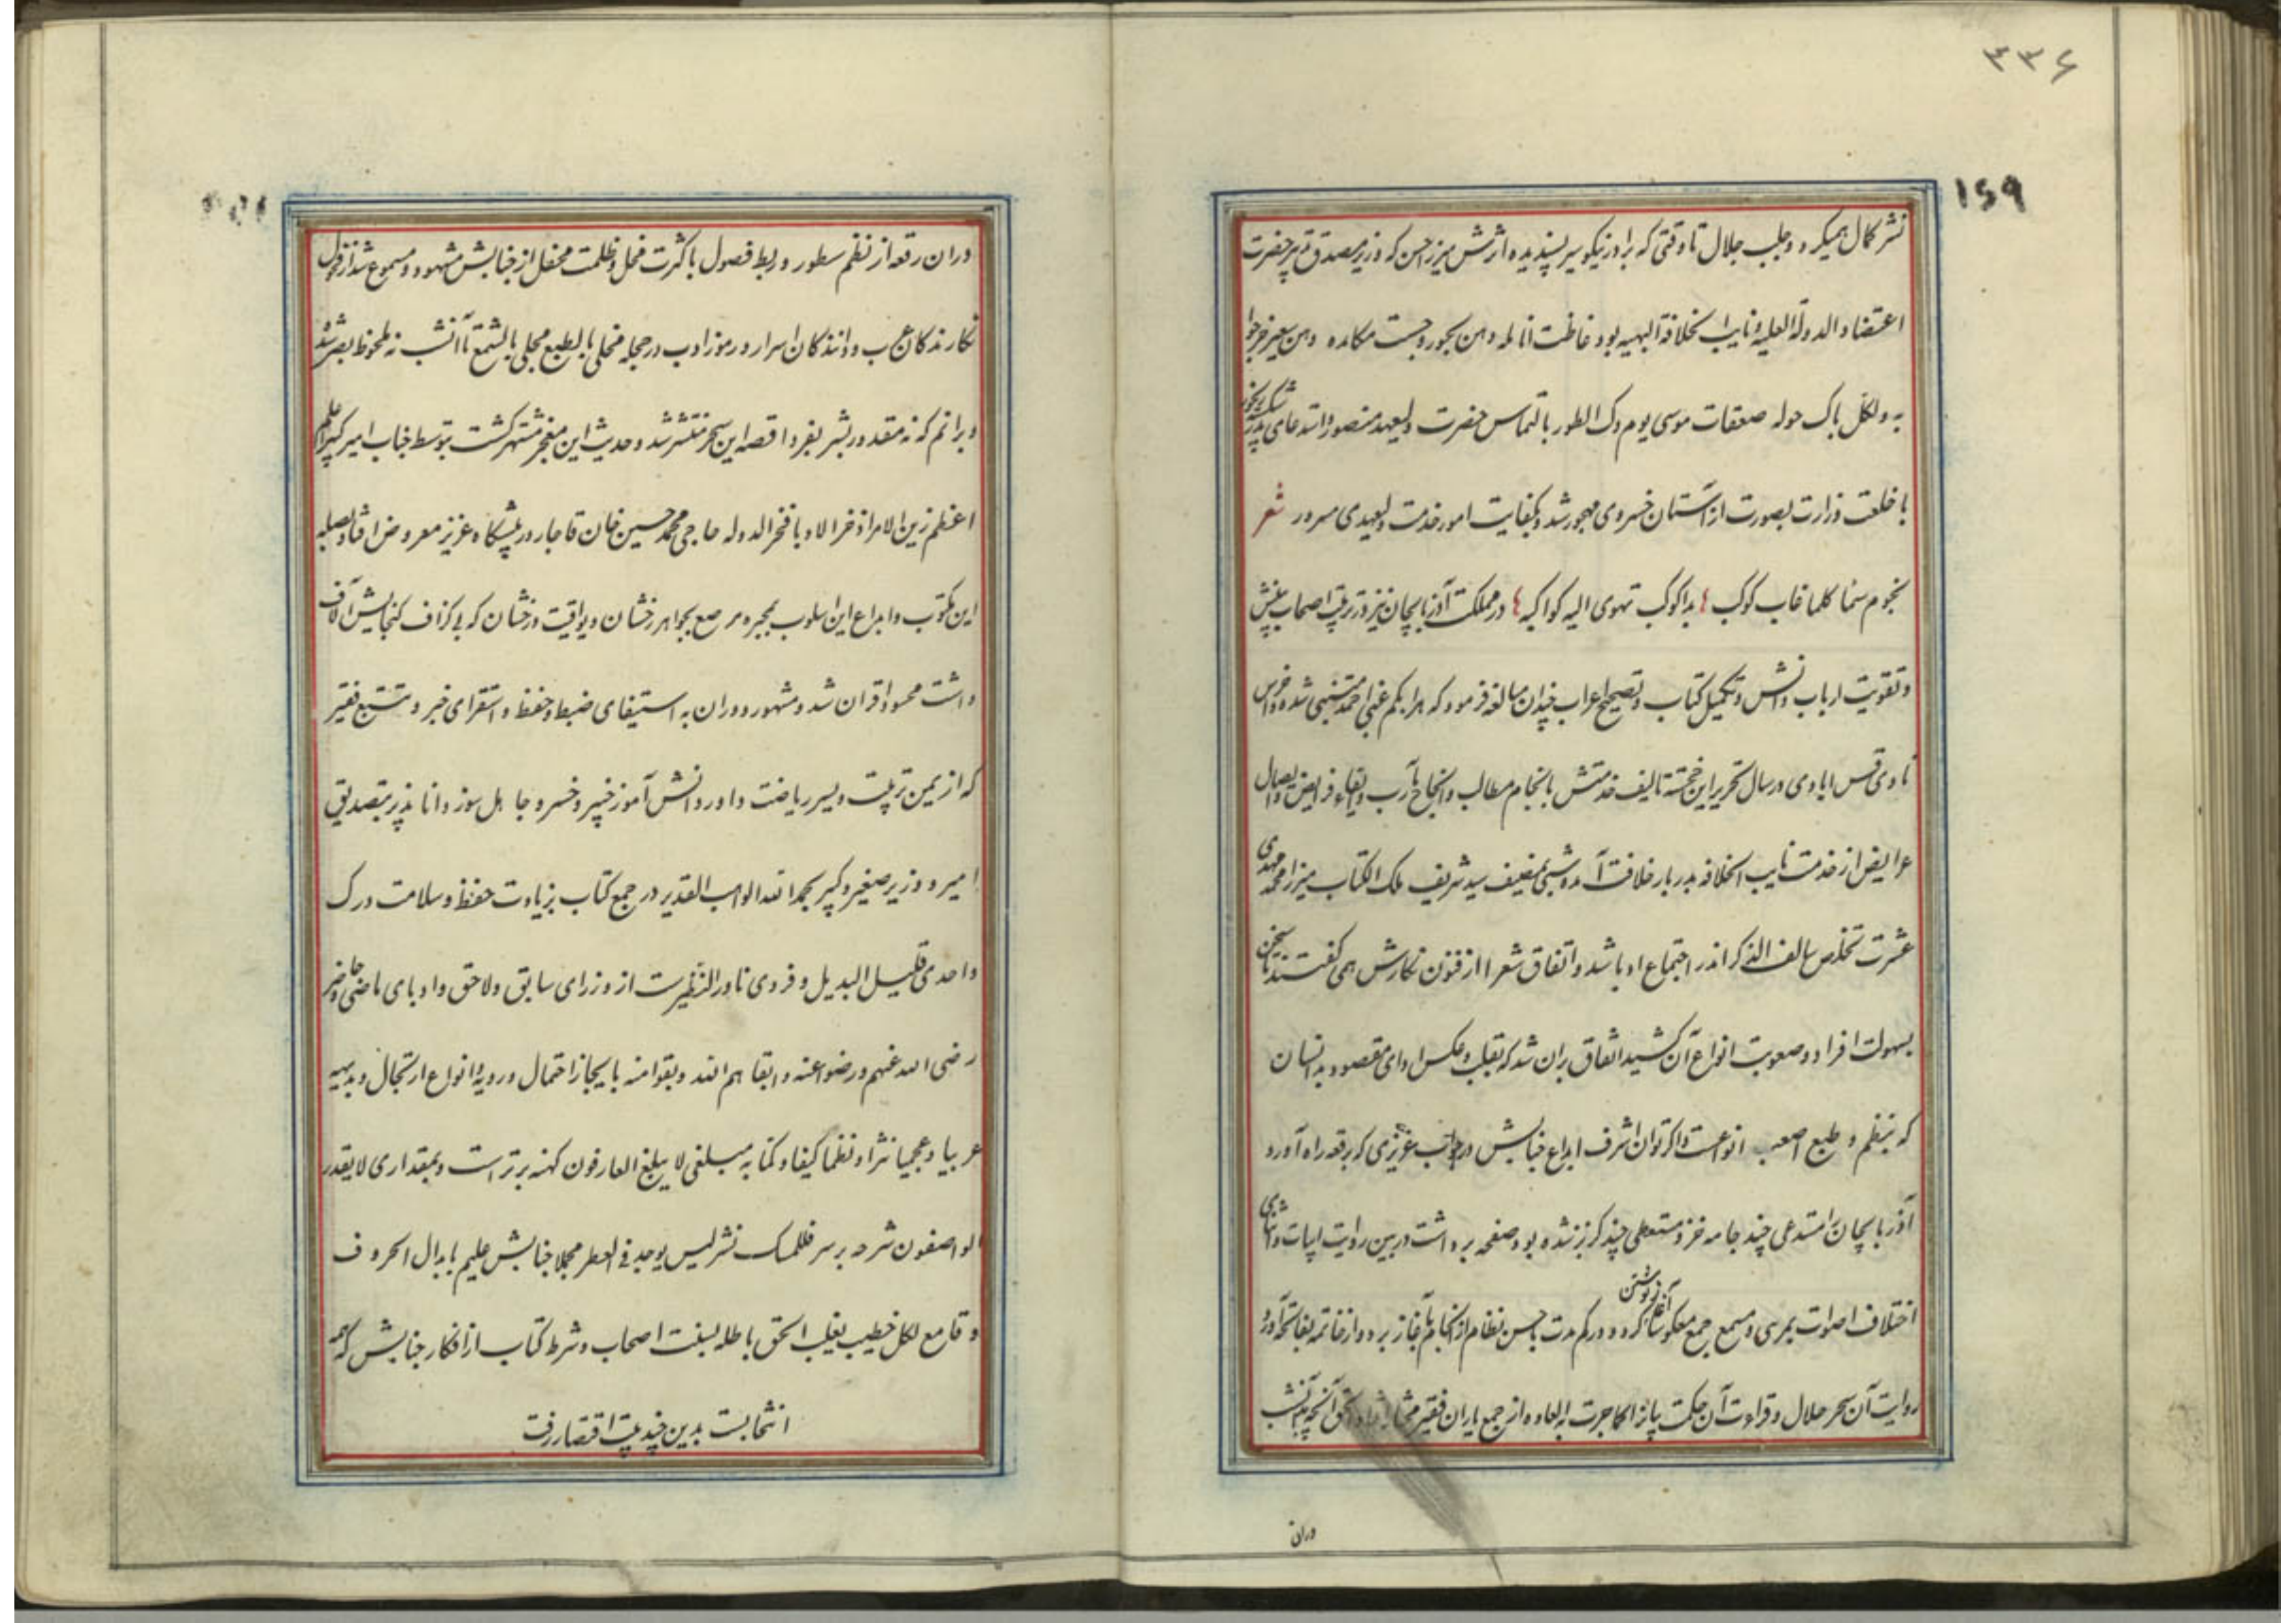 ۳۳۶
۱۶۹
نشر کمال همیکرد و جلب جلال تا وقتی که برادر نیکو سیر پسندیده اثرش میرزا حسن که وزیر حضرت
اعتضاد الدولة العلیه و نایب الخلافة البهیه بود
به ولکل باک حوله صعقات موسی یوم دک الطور بالتماس حضرت ولیعهد منصور
با خلعت وزارت بصورت از آستان خسروی مهجور شد و بکفایت امور خدمت ولیعهدی مسرور شعر
نجوم سما کلما غاب کوکب بدا کوکب تهوی الیه کواکبه در مملکت آذربایجان نیز در تربیت اصحاب بینش
و تقویت ارباب دانش و تکمیل کتاب و تصحیح اعراب چندان مبالغه فرمود که
در سال تحریر این خجسته تالیف خدمتش بانجام مطالب و انجاح مآرب و
عرایض از خدمت نایب الخلافه بدربار خلافت آمد و شبی بمضیف سید شریف ملک الکتاب میرزا محمد مهدی
عشرت تخلص سالف الذکر اندر اجتماع ادبا شد و اتفاق شعرا از فنون نکارش همی کفتند تا سخن
بسهولت افراد و صعوبت انواع آن کشید اتفاق بران شد که بقلب و عکس ادای مقصود بدانسان
که بنظم و طبع اصعب انواعست و اکر توان اشرف ابداع جنابش در جواب عزیزی که برقعه راه آورد
آذربایجان را مستدعی چند جامه خز و مستعطی چند کز بز شده بود صفحه برداشت در بین روایت ابیات و
اختلاف اصوات بمرئی و مسمع جمع معکوسا آغاز نوشتن کرد و در کم مدت باحسن نظام از انجام بآغاز برد و از خاتمه بفاتحه آورد
روایت آن سحر حلال و قراءت آن حکمت از جمع یاران فقیر
دران
دران رقعه از نظم سطور و ربط فصول با کثرت مخل و ظلمت محفل از جنابش مشهود و مسموع شد
نکارندکان عجب و دانندکان اسرار و رموز ادب در حجله متحلی بالطبع مجلی بالشمع تا آنشب نه ملحوظ بصر شد
و برانم که نه مقدور بشر بفردا قصه این سحر منتشر شد و حدیث این معجز مشتهر کشت بتوسط جناب امیر کبیر اعلم
اعظم زین الامرا ذخر الادبا فخر الدوله حاجی محمد حسین خان قاجار در پیشکاه عزیز معروض افتاد بصله
این مکتوب و ابداع این اسلوب بمجبره مرصع بجواهر رخشان و یواقیت درخشان که بی کزاف کنجایش آلاف
داشت محسود اقران شد و مشهور دوران به استیفای ضبط و حفظ و استقرای خبر و تتبع فقیر
که از یمن تربیت و یسر ریاضت داور دانش آموز خبیر و خسرو جاهل سوز دانا پذیر بتصدیق
امیر و وزیر صغیر و کبیر بحمد الله الواهب القدیر در جمع کتاب بزیادت حفظ و سلامت درک
واحدی قلیل البدیل و فردی نادر النظیرست از وزرای سابق و لاحق و ادبای ماضی و حاضر
رضی الله عنهم و رضوا عنه و ابقاهم الله و بقوا منه بایجاز احتمال و رویه و انواع ارتجال و بدیهه
عربیا و عجمیا نثرا و نظما کیفا و کما به مبلغی لا یبلغ العارفون کنهه برتر است و بمقداری لا یقدر
الواصفون شرحه برسر فللمسک نشر لیس یوجد فی العطر مجملا جنابش علیم بابدال الحروف
و قامع لکل خطیب یغلب الحق باطله بسنت اصحاب و شرط کتاب از افکار جنابش که همه
انتخابست بدین چند بیت اقتصار رفت